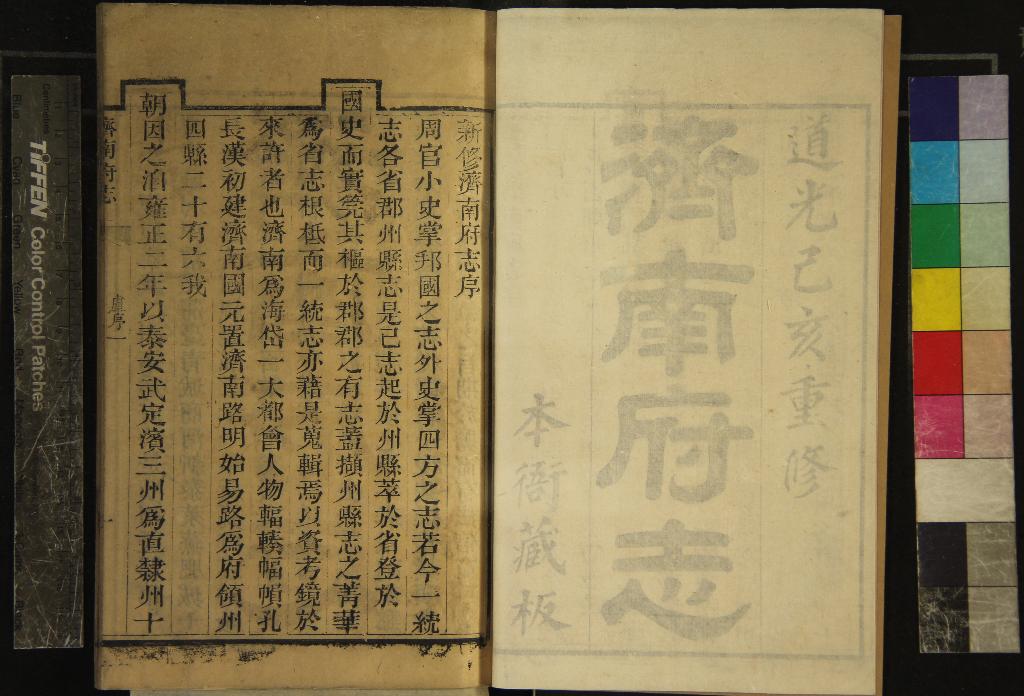 道光己亥重修
濟南府志
本衙藏板
新修濟南府志序
周官小史掌邦國之志外史掌四方之志若今一統
志各省郡州縣志是已志起於州縣萃於省登於
國史而實筦其樞於郡郡之有志蓋擷州縣志之菁華
爲省志根柢而一統志亦藉是蒐輯焉以資考鏡於
來許者也濟南爲海岱一大都會人物輻輳幅幀孔
長漢初建濟南國元置濟南路明始易路爲府領州
四縣二十有六我
朝因之洎雍正二年以泰安武定濱三州爲直隸州十
濟南府志
序一
TIFFEN Color Control Patches